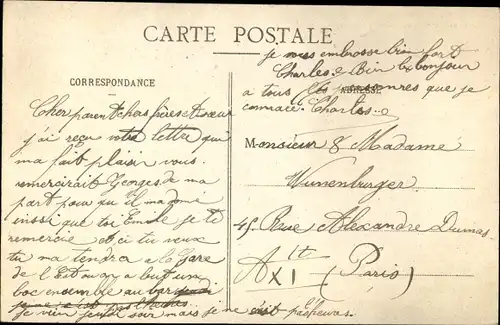 CARTE POSTALE
je vous embrasse bien fort
Charles. Bien le bonjour
a tous les personnes que je
connaee. Charles.
CORRESPONDANCE
ADRESSE
Cher parent et chers frères et sœur
j'ai reçu votre lettre qui
ma fait plaisir vous
remercirait Georges de ma
part pour qu'il ma donné
inssi que toi Emile je te
remercie et si tu veux
tu ma tendra a la Gare
de l'Est on y a but un
boc ensemble au bar
je vien jeudi soir mais je ne
Monsieur & Madame
Wunenburger
45 Rue Alexandre Dumas
XI (Paris)